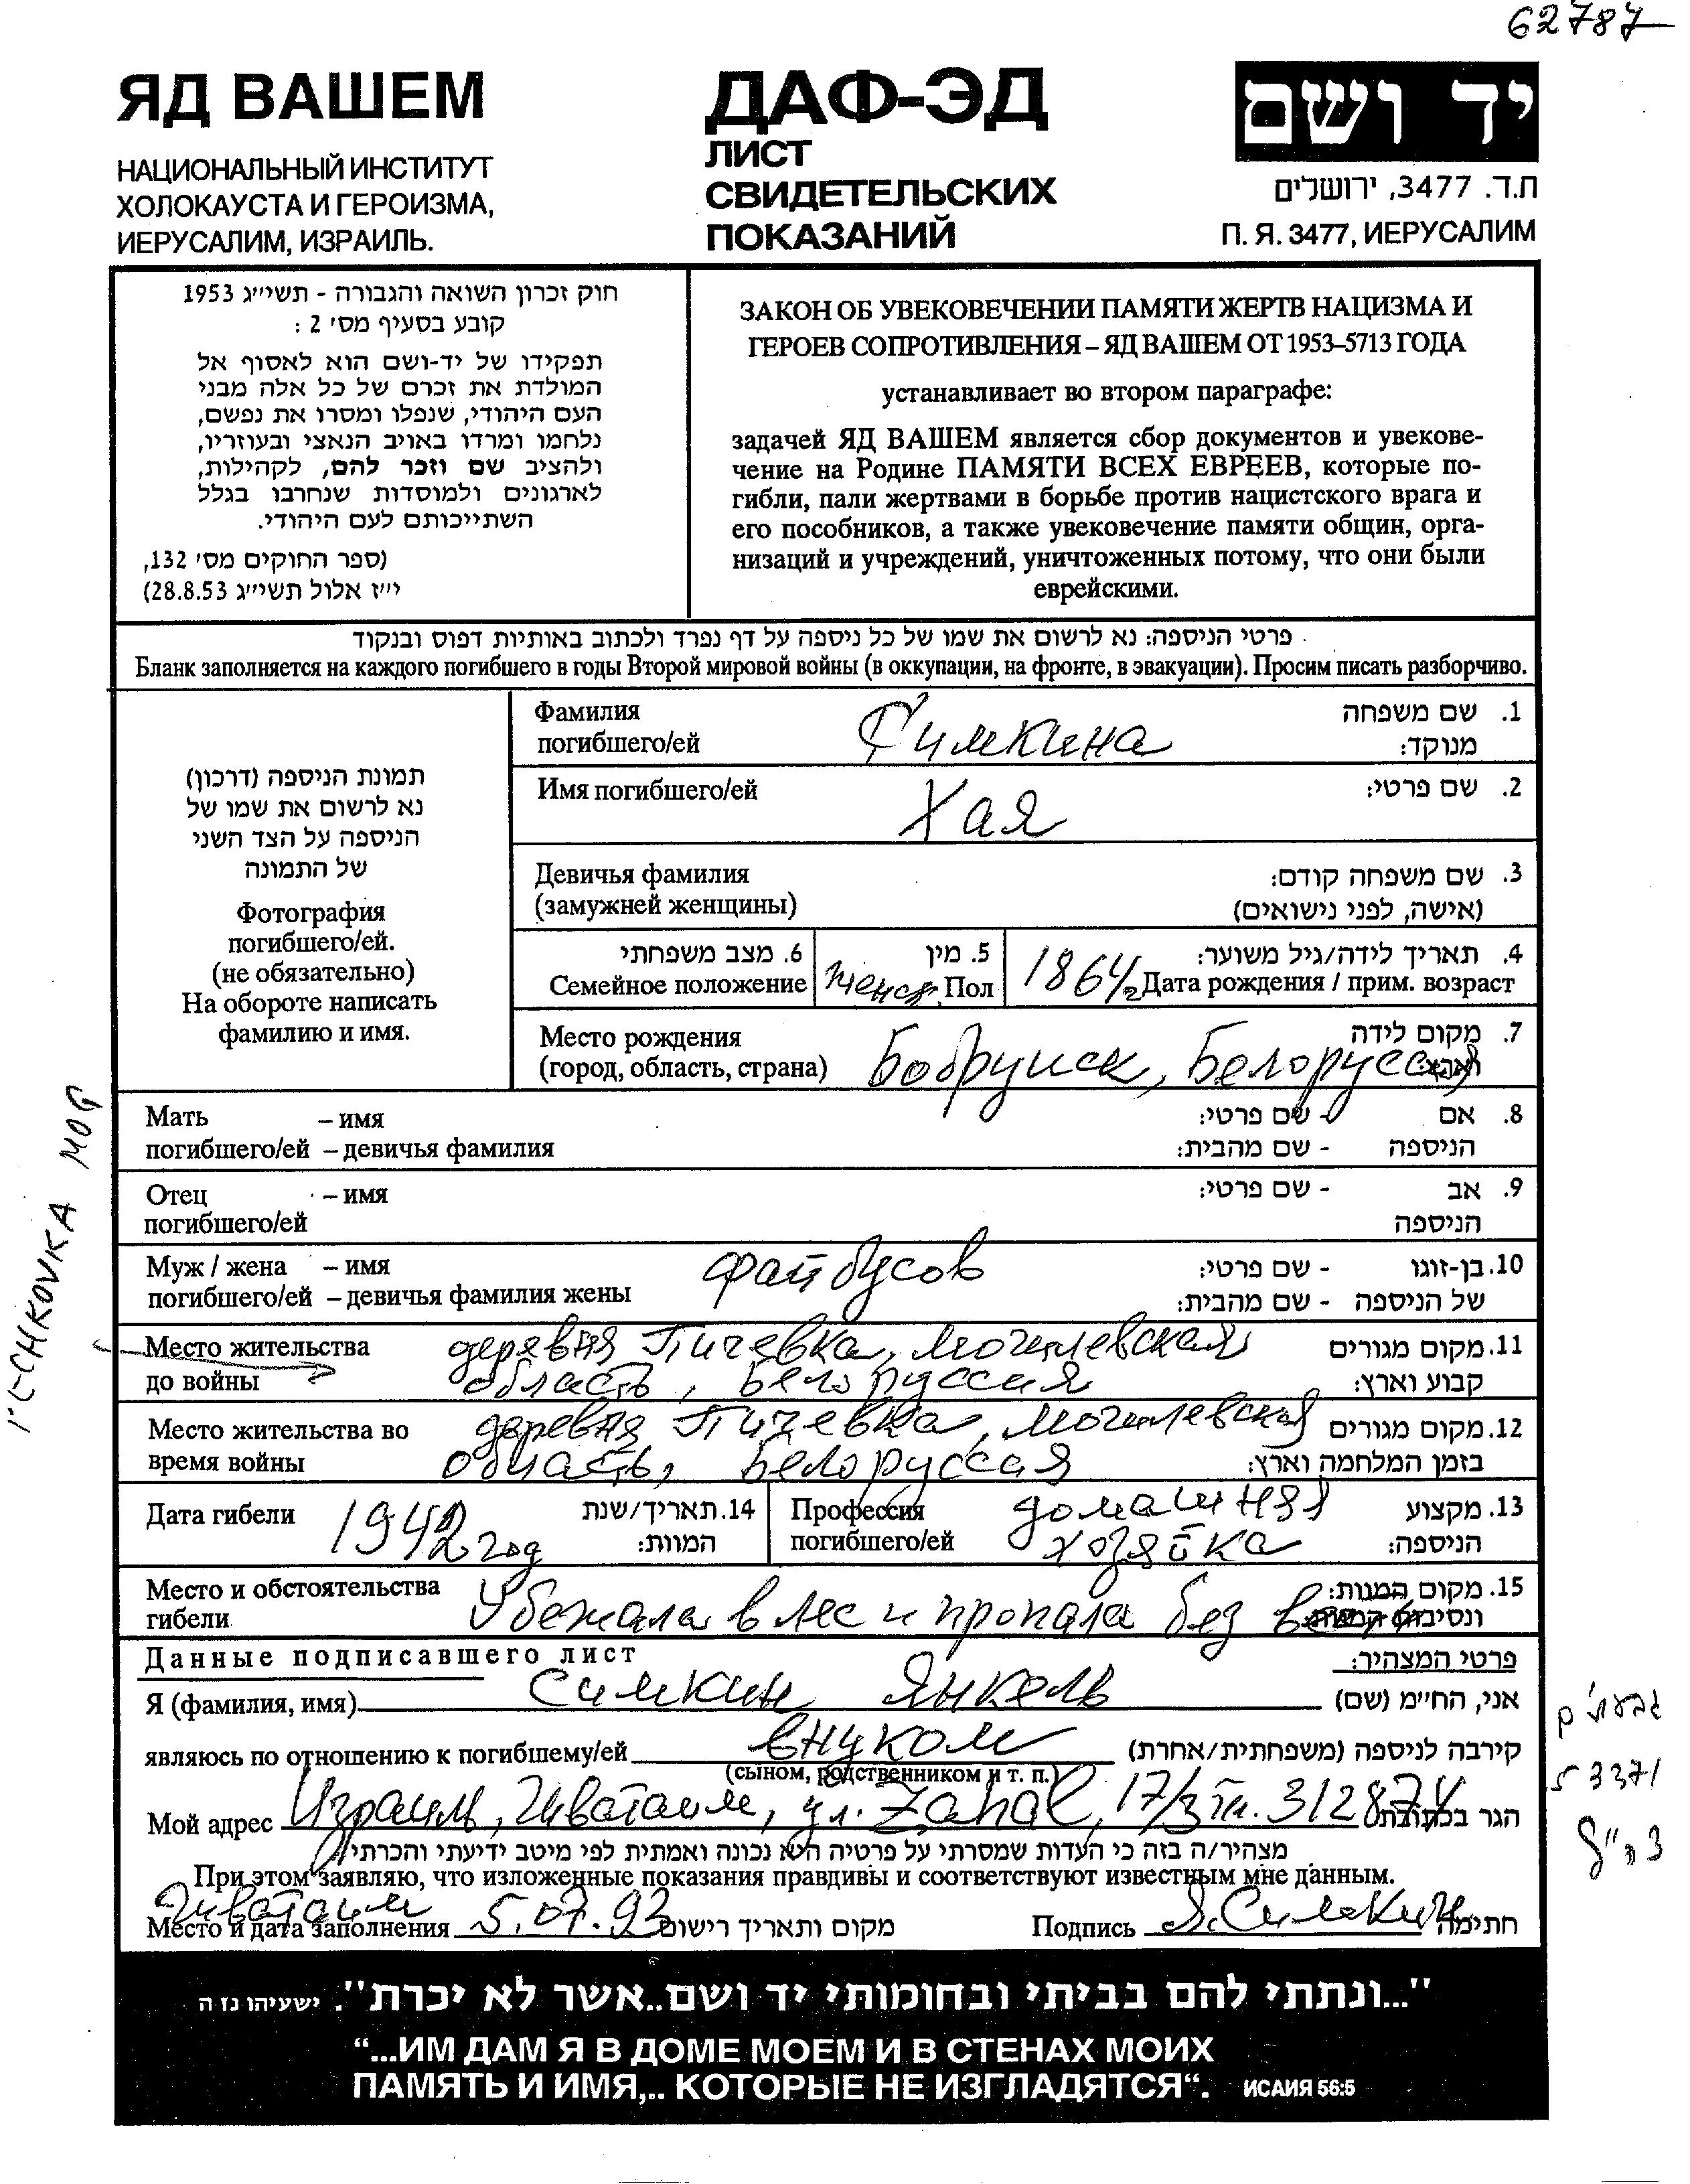 62787
ЯД ВАШЕМ
НАЦИОНАЛЬНЫЙ ИНСТИТУТ
ХОЛОКАУСТА И ГЕРОИЗМА,
ИЕРУСАЛИМ, ИЗРАИЛЬ.
ДАФ-ЭД
ЛИСТ
СВИДЕТЕЛЬСКИХ
ПОКАЗАНИЙ
יד ושם
ת.ד. 3477, ירושלים
П. Я. 3477, ИЕРУСАЛИМ
חוק זכרון השואה והגבורה - תשי״ג 1953
קובע בסעיף מס׳ 2 :
תפקידו של יד-ושם הוא לאסוף אל
המולדת את זכרם של כל אלה מבני
העם היהודי, שנפלו ומסרו את נפשם,
נלחמו ומרדו באויב הנאצי ובעוזריו,
ולהציב שם וזכר להם, לקהילות,
לארגונים ולמוסדות שנחרבו בגלל
השתייכותם לעם היהודי.
(ספר החוקים מס׳ 132,
י״ז אלול תשי״ג 28.8.53)
ЗАКОН ОБ УВЕКОВЕЧЕНИИ ПАМЯТИ ЖЕРТВ НАЦИЗМА И
ГЕРОЕВ СОПРОТИВЛЕНИЯ – ЯД ВАШЕМ ОТ 1953–5713 ГОДА
устанавливает во втором параграфе:
задачей ЯД ВАШЕМ является сбор документов и увекове-
чение на Родине ПАМЯТИ ВСЕХ ЕВРЕЕВ, которые по-
гибли, пали жертвами в борьбе против нацистского врага и
его пособников, а также увековечение памяти общин, орга-
низаций и учреждений, уничтоженных потому, что они были
еврейскими.
פרטי הניספה: נא לרשום את שמו של כל ניספה על דף נפרד ולכתוב באותיות דפוס ובנקוד
Бланк заполняется на каждого погибшего в годы Второй мировой войны (в оккупации, на фронте, в эвакуации). Просим писать разборчиво.
תמונת הניספה (דרכון)
נא לרשום את שמו של
הניספה על הצד השני
של התמונה
Фотография
погибшего/ей.
(не обязательно)
На обороте написать
фамилию и имя.
Фамилия Симкина 1. שם משפחה
погибшего/ей מנוקד:
Имя погибшего/ей Хая 2. שם פרטי:
Девичья фамилия 3. שם משפחה קודם:
(замужней женщины) (אישה, לפני נישואים)
6. מצב משפחתי 5. מין 4. תאריך לידה/גיל משוער:
Семейное положение женск. Пол 1864г Дата рождения / прим. возраст
Место рождения 7. מקום לידה
(город, область, страна) Бобруйск, Белоруссия וארץ:
Мать – имя 8. אם - שם פרטי:
погибшего/ей – девичья фамилия הניספה - שם מהבית:
Отец – имя 9. אב - שם פרטי:
погибшего/ей הניספה
Муж / жена – имя Файбусов 10. בן-זוגו - שם פרטי:
погибшего/ей – девичья фамилия жены של הניספה - שם מהבית:
Место жительства деревня Пичевка, Могилевская 11. מקום מגורים
до войны область, Белоруссия קבוע וארץ:
Место жительства во деревня Пичевка, Могилевская 12. מקום מגורים
время войны область, Белоруссия בזמן המלחמה וארץ:
Дата гибели 1942 год 14. תאריך/שנת המוות:
Профессия домашняя 13. מקצוע
погибшего/ей хозяйка הניספה:
Место и обстоятельства 15. מקום המוות:
гибели Убежала в лес и пропала без вести ונסיבות המוות:
Данные подписавшего лист פרטי המצהיר:
Я (фамилия, имя) Симкин Янкель אני, החי״מ (שם)
являюсь по отношению к погибшему/ей внуком קירבה לניספה (משפחתית/אחרת)
(сыном, родственником и т. п.)
Мой адрес Израиль, Гиватаим, ул. Zahal, 17/3 тл. 312874 הגר בכתובת
מצהיר/ה בזה כי העדות שמסרתי על פרטיה היא נכונה ואמתית לפי מיטב ידיעתי והכרתי
При этом заявляю, что изложенные показания правдивы и соответствуют известным мне данным.
Гиватаим
Место и дата заполнения 5.07.93 מקום ותאריך רישום Подпись Я. Симкин חתימה
גבעתיים
53371
צה״ל
"...ונתתי להם בביתי ובחומותי יד ושם..אשר לא יכרת". ישעיהו נו ה
“...ИМ ДАМ Я В ДОМЕ МОЕМ И В СТЕНАХ МОИХ
ПАМЯТЬ И ИМЯ,.. КОТОРЫЕ НЕ ИЗГЛАДЯТСЯ“. ИСАИЯ 56:5